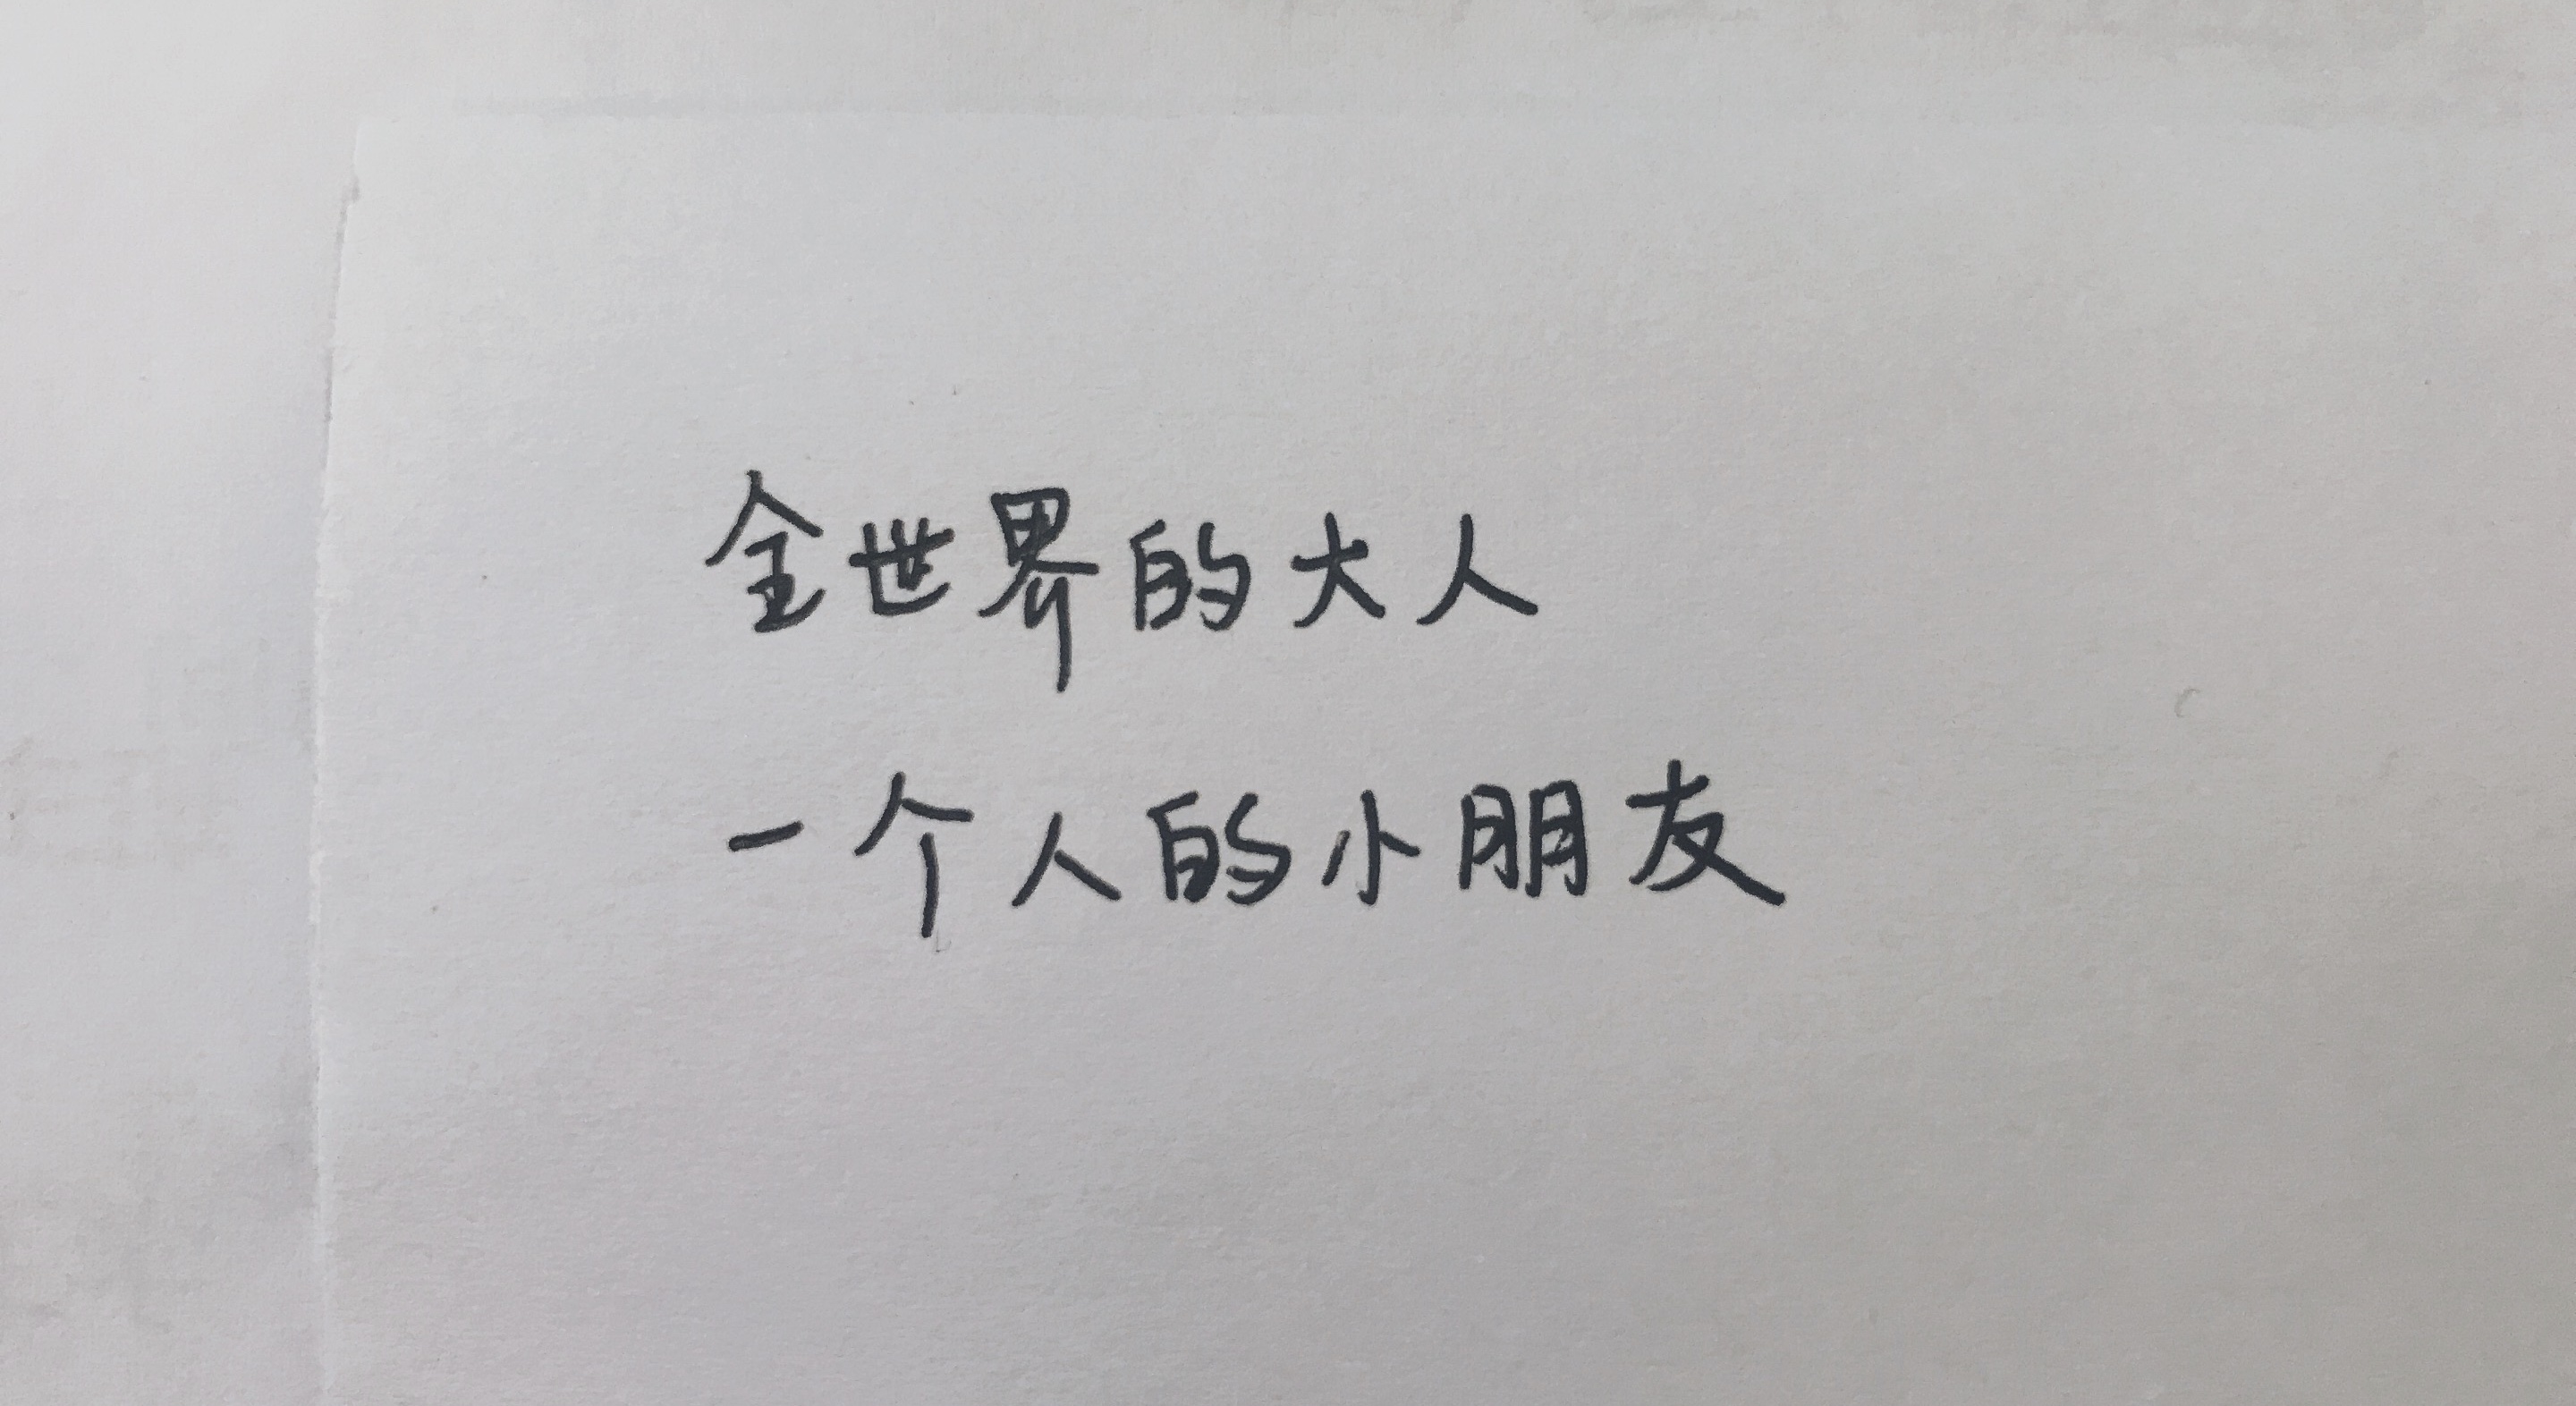 全世界的大人
一个人的小朋友